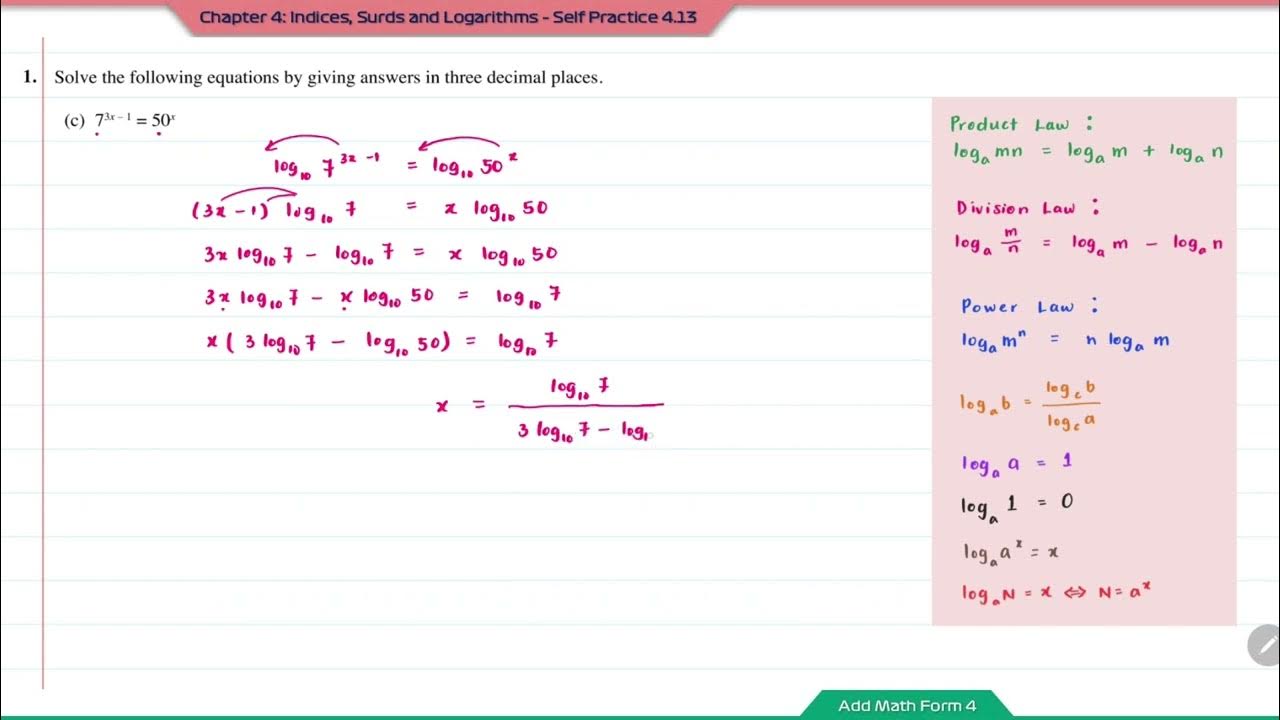 Chapter 4: Indices, Surds and Logarithms - Self Practice 4.13
1. Solve the following equations by giving answers in three decimal places.
(c) 7³ˣ⁻¹ = 50ˣ
log₁₀ 7³ˣ⁻¹ = log₁₀ 50ˣ
(3x - 1) log₁₀ 7 = x log₁₀ 50
3x log₁₀ 7 - log₁₀ 7 = x log₁₀ 50
3x log₁₀ 7 - x log₁₀ 50 = log₁₀ 7
x ( 3 log₁₀ 7 - log₁₀ 50) = log₁₀ 7
x = log₁₀ 7 / 3 log₁₀ 7 - log₁
Product Law :
logₐ mn = logₐ m + logₐ n
Division Law :
logₐ m/n = logₐ m - logₐ n
Power Law :
logₐ mⁿ = n logₐ m
logₐ b = log_c b / log_c a
logₐ a = 1
logₐ 1 = 0
logₐ aˣ = x
logₐ N = x ⇔ N = aˣ
Add Math Form 4